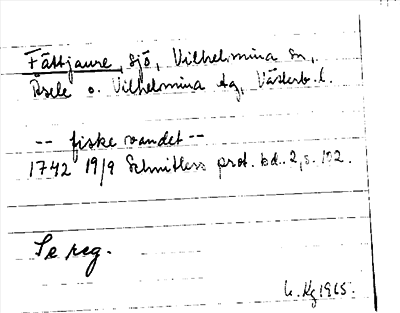 Fättjaure, sjö, Vilhelmina sn,
Åsele o. Vilhelmina tg, Västerb. l.
-- fiske vandet --
1742 19/9 Schnitlers prot. bd. 2, s. 102.
Se reg.
Kg 1965.